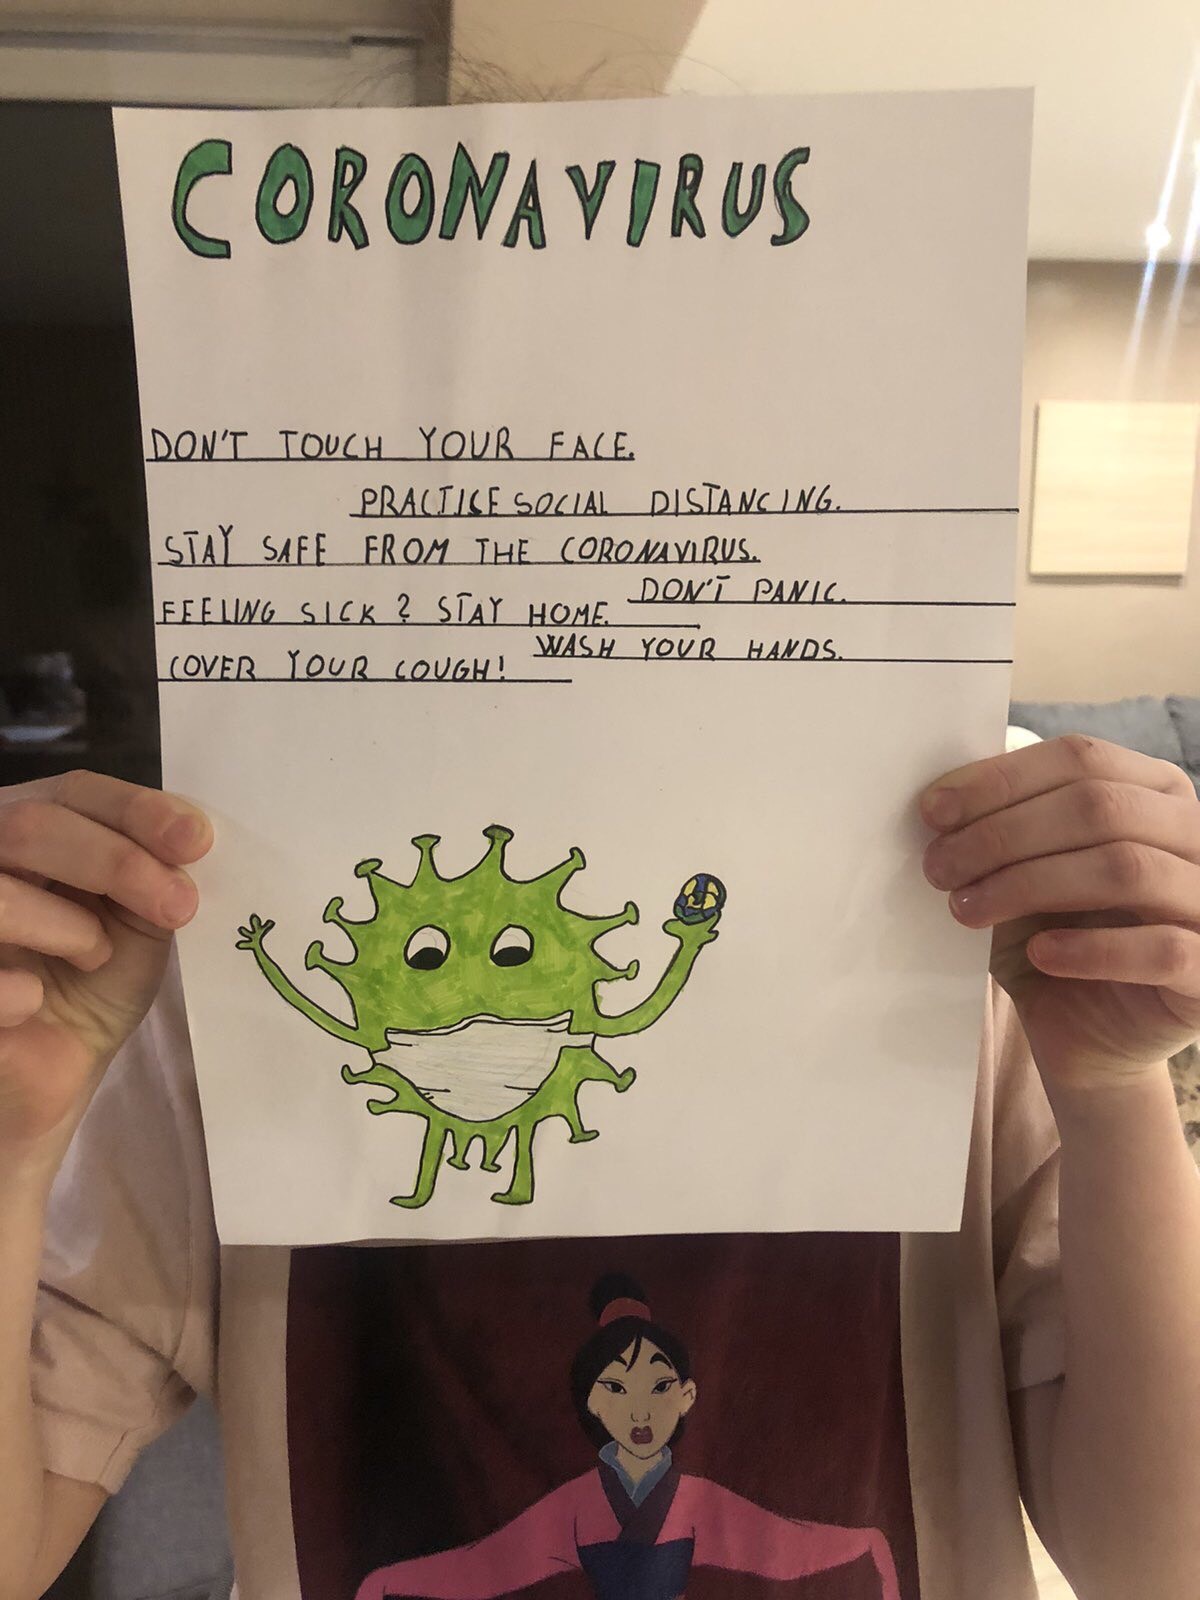 CORONAVIRUS
DON'T TOUCH YOUR FACE.
PRACTISE SOCIAL DISTANCING.
STAY SAFE FROM THE CORONAVIRUS.
DON'T PANIC.
FEELING SICK? STAY HOME.
WASH YOUR HANDS.
COVER YOUR COUGH!